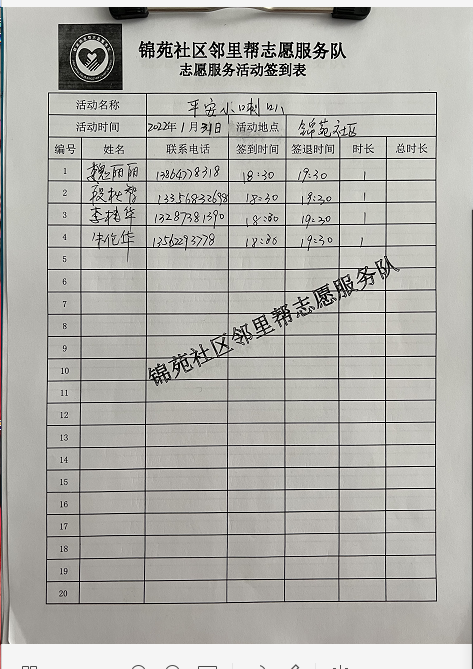 锦苑社区邻里帮志愿服务队
志愿服务活动签到表
活动名称 平安小喇叭
活动时间 2022年1月31日 活动地点 锦苑社区
编号 姓名 联系电话 签到时间 签退时间 时长 总时长
1 魏丽丽 13864778318 18:30 19:30 1
2 13356832698 18:30 19:30 1
3 李桂华 13287381390 18:30 19:30 1
4 13562293778 18:30 19:30 1
5
6
7
8
9
10
11
12
13
14
15
16
17
18
19
20
锦苑社区邻里帮志愿服务队